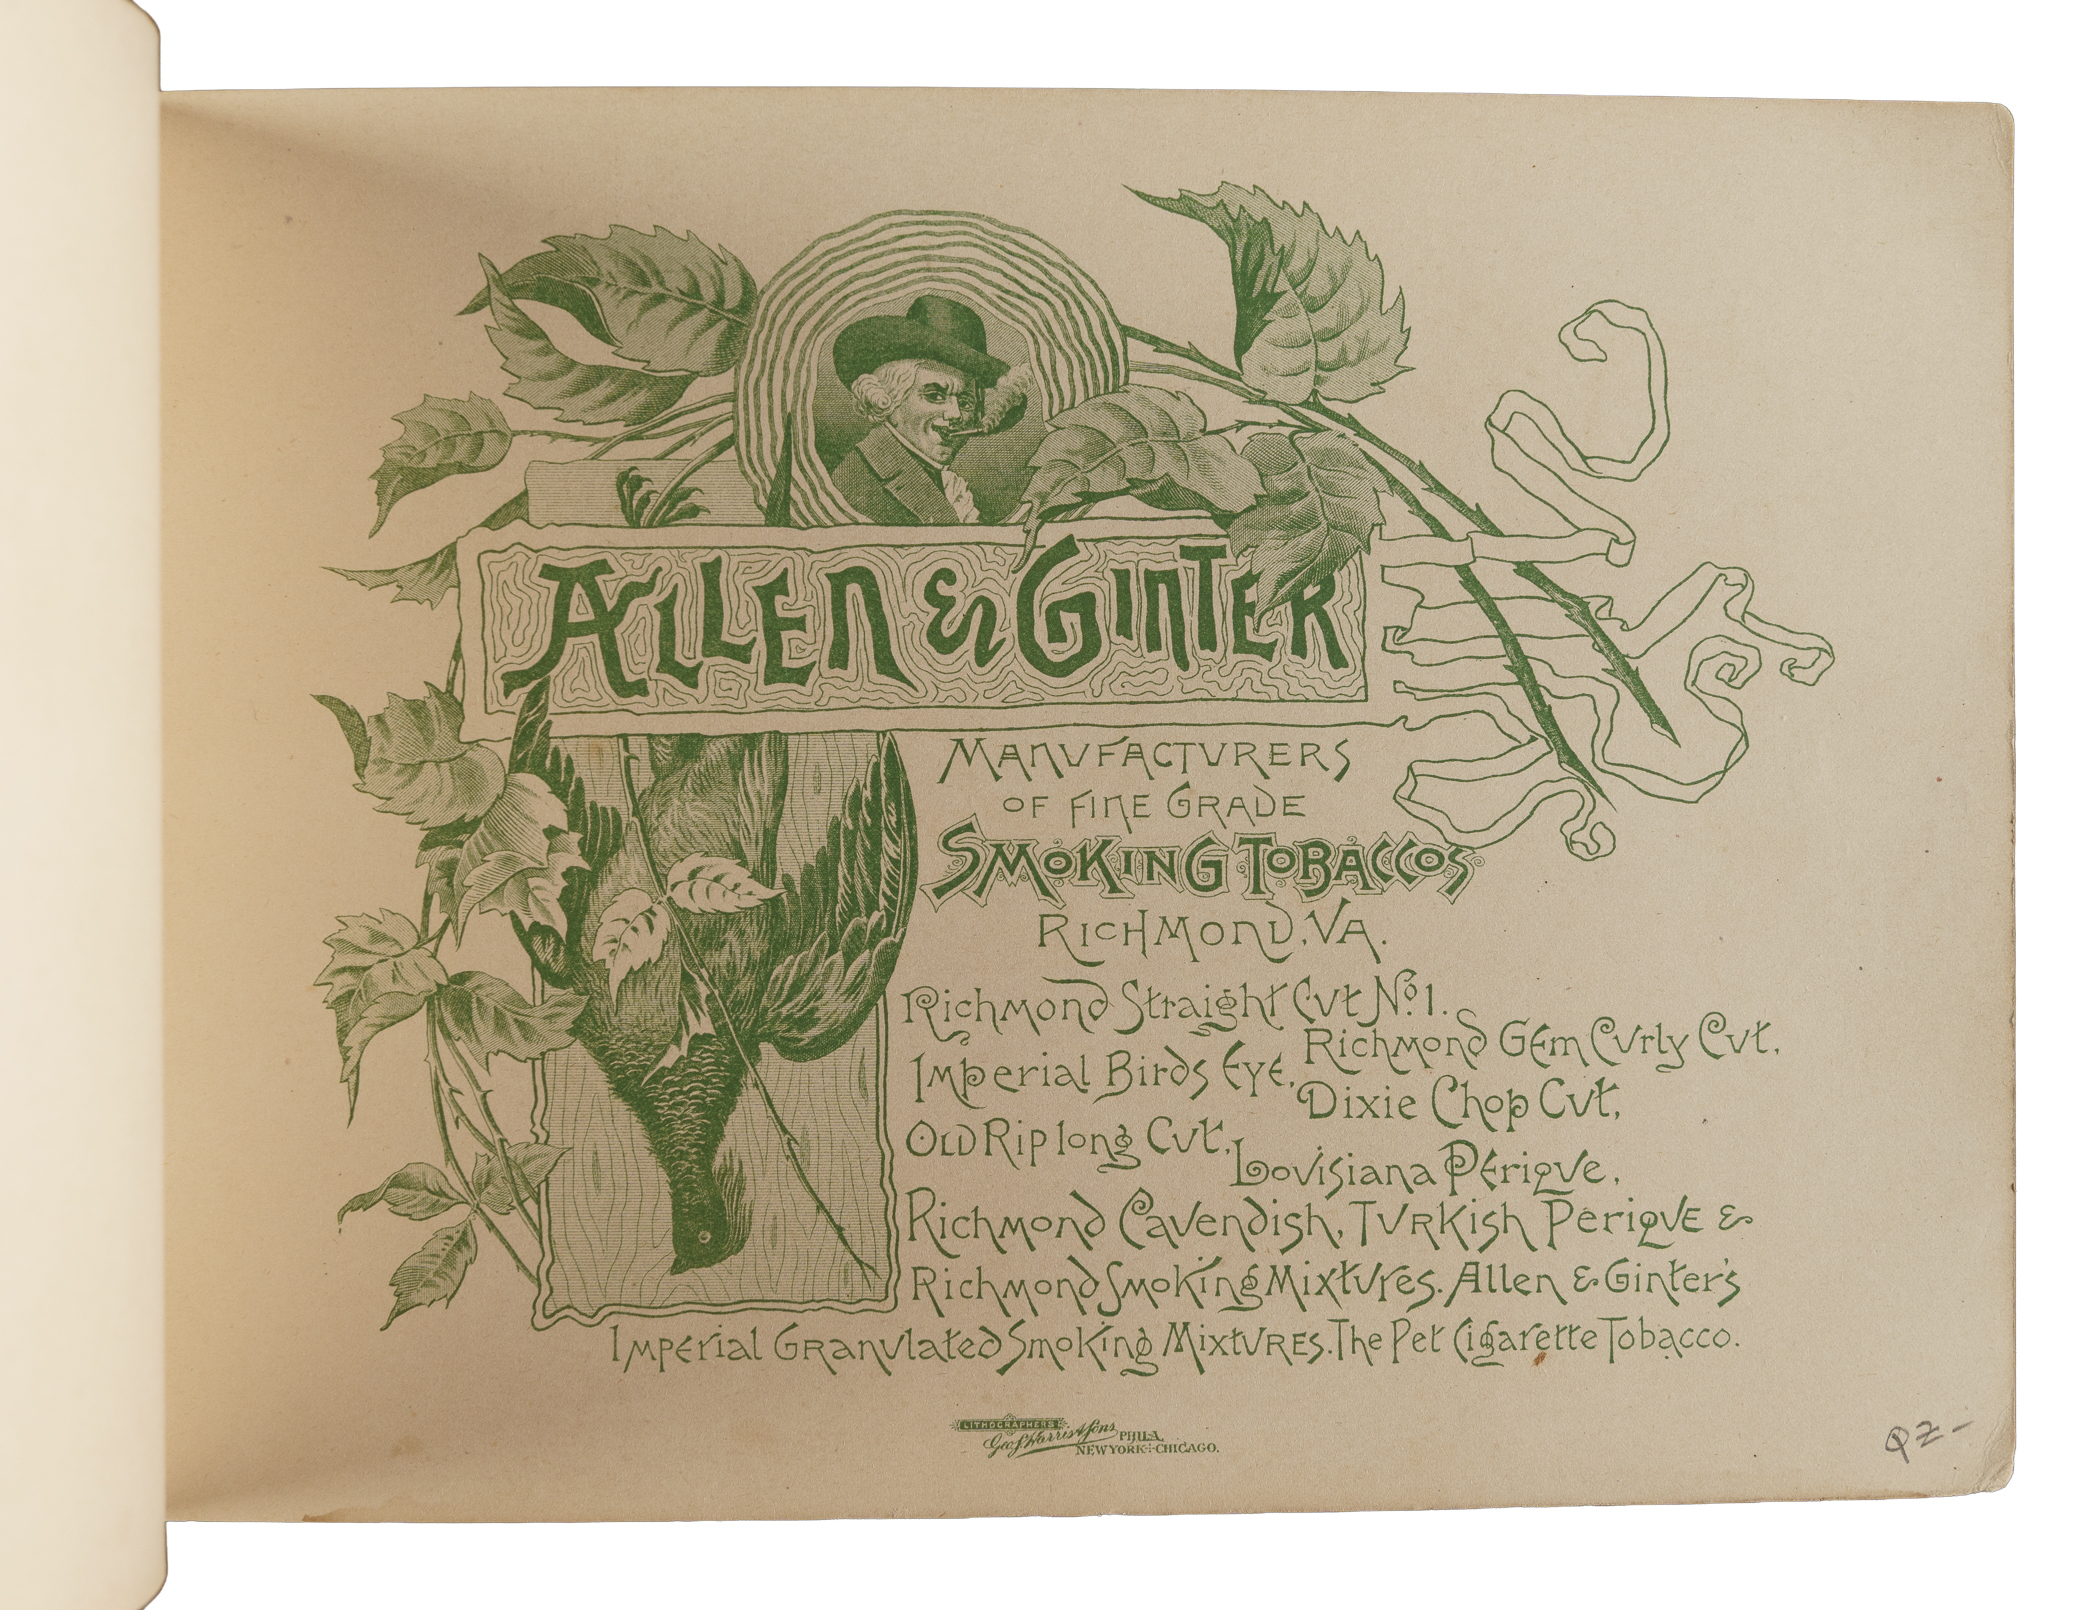 ALLEN & GINTER
MANUFACTURERS
OF FINE GRADE
SMOKING TOBACCOS
RICHMOND, VA.
Richmond Straight Cut No. 1.
Richmond Gem Curly Cut,
Imperial Birds Eye,
Dixie Chop Cut,
Old Rip long Cut,
Lovisiana Perique,
Richmond Cavendish, Turkish Perique &
Richmond Smoking Mixtures. Allen & Ginter's
Imperial Granulated Smoking Mixtures. The Pet Cigarette Tobacco.
LITHOGRAPHERS
Geo. S. Harris & Sons PHILA.
NEW YORK CHICAGO.